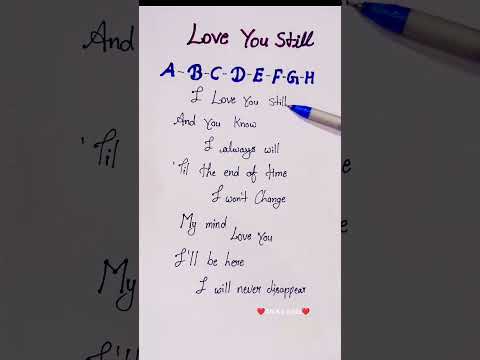 Love You Still
A-B-C-D-E-F-G-H
I Love You still
And You Know
I always will
'Til the end of time
I won't Change
My mind
Love You
I'll be here
I will never disappear